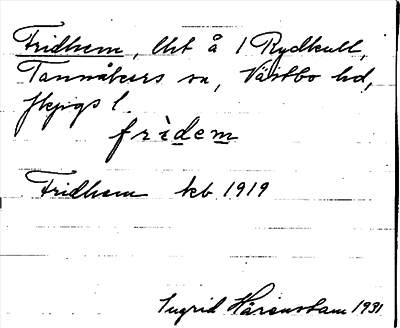 Fridhem, lht å 1 Rydkull,
Tannåkers sn, Västbo hd,
Jkpgs l.
fridem
Fridhem kb 1919
Ingrid Härenstam 1931